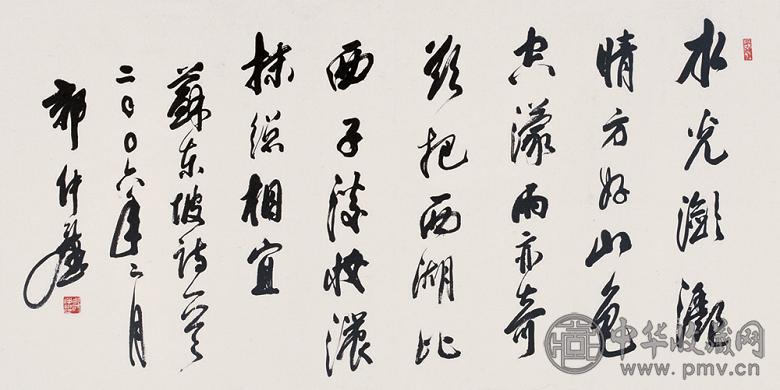 水光瀲灧
晴方好山色
空濛雨亦奇
欲把西湖比
西子淡妝濃
抹總相宜
蘇東坡詩一首
二〇〇六年二月
郭仲選
中华收藏网
www.pmv.cn